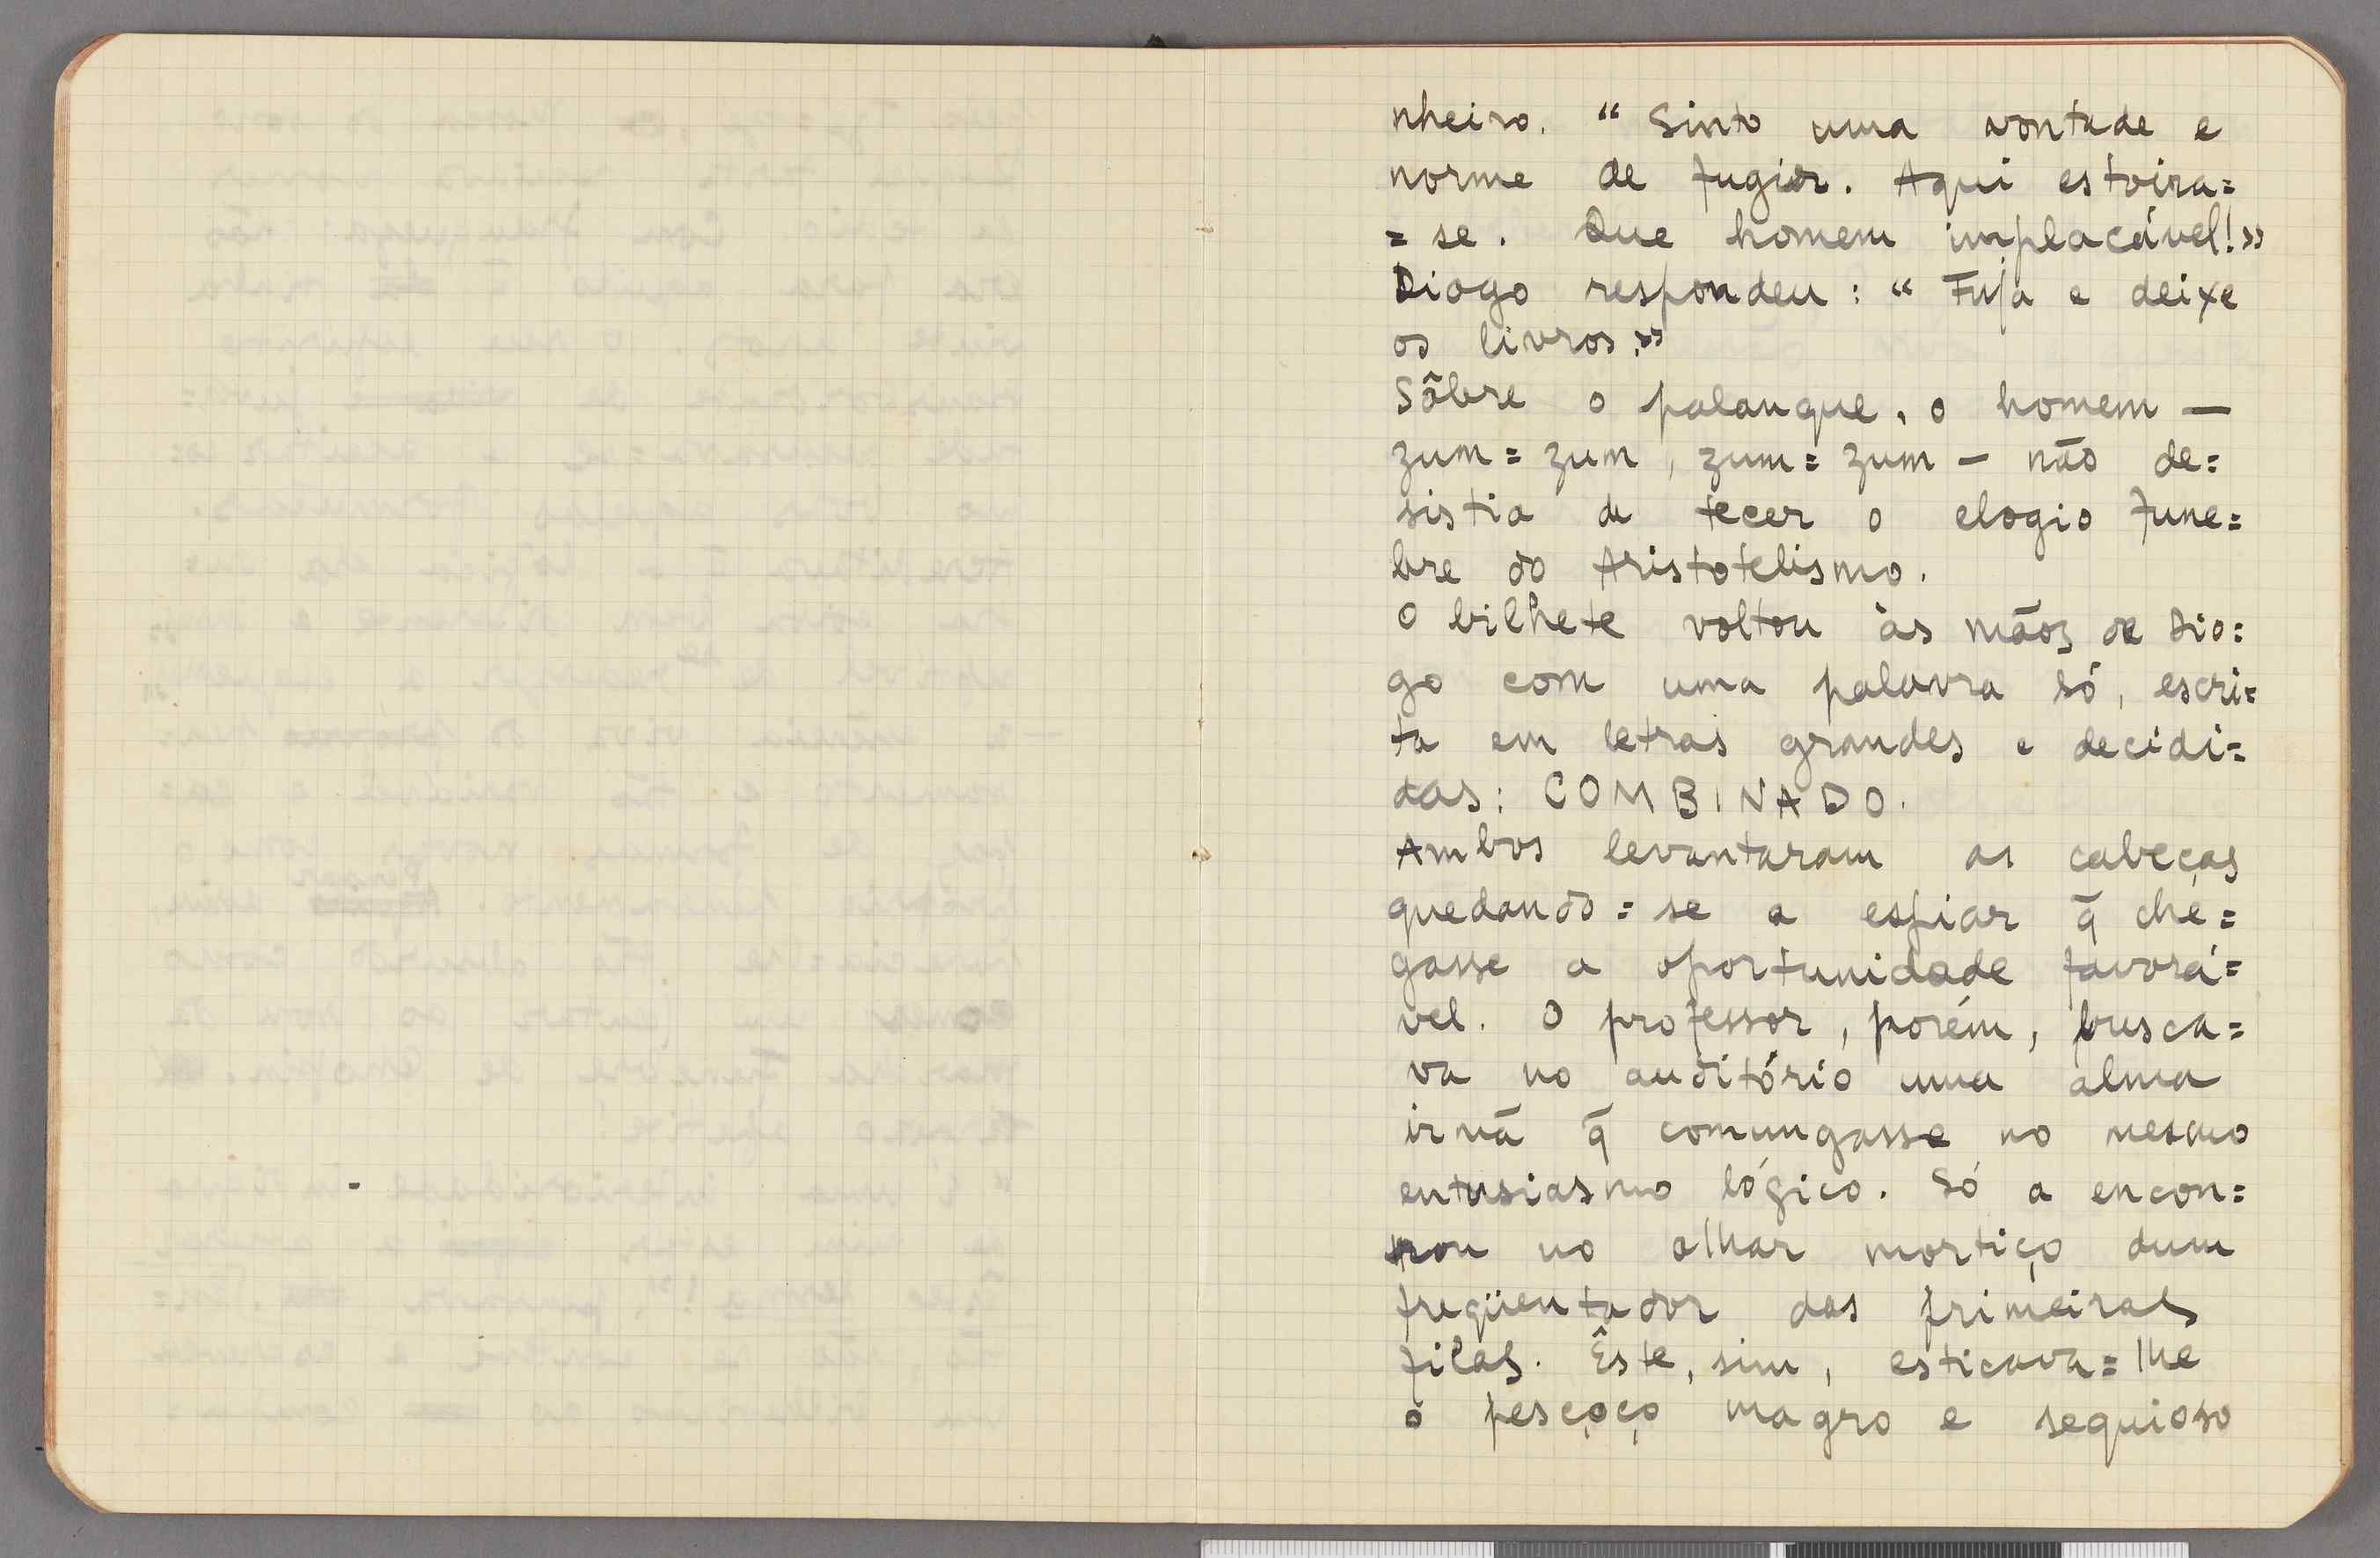 nheiro. “Sinto uma vontade e
norme de fugir. Aqui estoira=
=se. Que homem implacável!»
Diogo respondeu: “Fuja e deixe
os livros.»
Sôbre o palanque, o homem —
zum=zum, zum=zum — não de=
sistia de tecer o elogio fune=
bre do Aristotelismo.
O bilhete voltou às mãos de Dio=
go com uma palavra só, escri=
ta em letras grandes e decidi=
das: COMBINADO.
Ambos levantaram as cabeças
quedando=se a espiar q̄ che=
gasse a oportunidade favorá=
vel. O professor, porém, busca=
va no auditório uma alma
irmã q̄ comungasse no mesmo
entusiasmo lógico. Só a encon=
trou no olhar mortiço dum
freqüentador das primeiras
filas. Êste, sim, esticava=lhe
o pescoço magro e sequioso